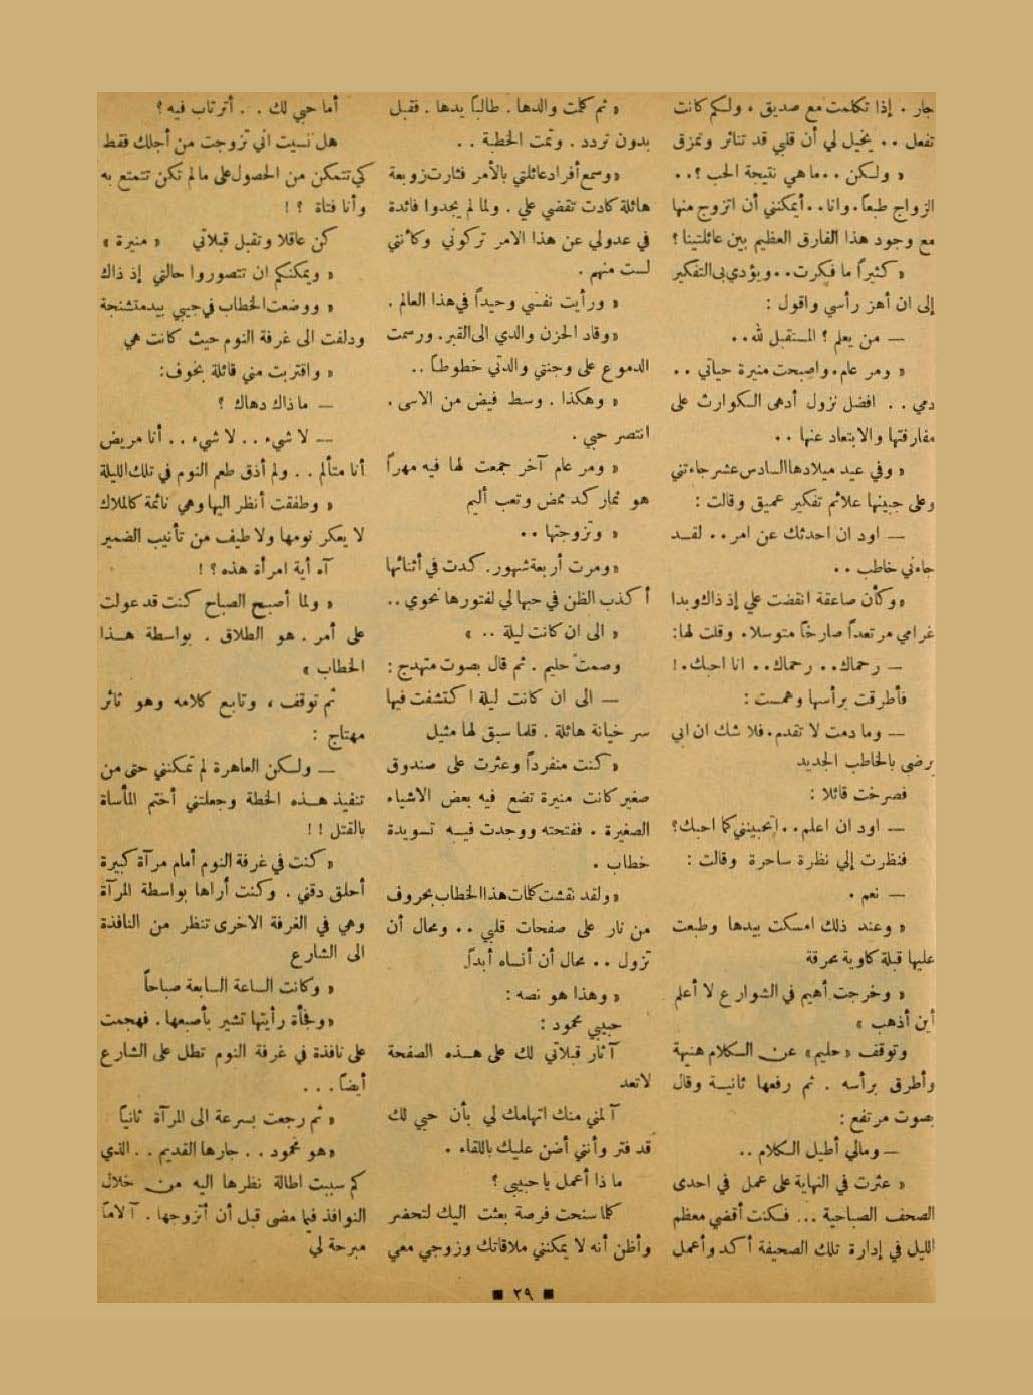 جار . إذا تكلمت مع صديق . ولكم كانت
تفعل .. يخيل لي أن قلبي قد تناثر وتمزق
« ولكن .. ما هي نتيجة الحب ؟ ..
الزواج طبعاً . وانا .. أيمكنني أن اتزوج منها
مع وجود هذا الفارق العظيم بين عائلتينا ؟
« كثيراً ما فكرت .. ويؤدي بي التفكير
إلى ان أهز رأسي واقول :
— من يعلم ؟ المستقبل لله ..
« ومر عام . واصبحت منيرة حياتي ..
دمي .. افضل نزول أدهى الكوارث على
مفارقتها والابتعاد عنها ..
« وفي عيد ميلادها السادس عشر جاءتني
وعلى جبينها علائم تفكير عميق وقالت :
— اود ان احدثك عن امر .. لقد
جاءني خاطب ..
« وكأن صاعقة انقضت علي إذ ذاك وبدا
غرامي مرتعداً صارخاً متوسلا . وقلت لها :
— رحماك .. رحماك .. انا احبك . !
فأطرقت برأسها وهمست :
— وما دمت لا تقدم . فلا شك ان ابي
يرضى بالخاطب الجديد
فصرخت قائلا :
— اود ان اعلم .. اتحبينني كما احبك ؟
فنظرت إلي نظرة ساحرة وقالت :
— نعم .
« وعند ذلك امسكت بيدها وطبعت
عليها قبلة كاوية محرقة
« وخرجت أهيم في الشوارع لا أعلم
أين أذهب »
وتوقف « حليم » عن الكلام هنيهة
وأطرق برأسه . ثم رفعها ثانية وقال
بصوت مرتفع :
— ومالي أطيل الكلام ..
« عثرت في النهاية على عمل في احدى
الصحف الصباحية ... فكنت أقضي معظم
الليل في إدارة تلك الصحيفة أكد وأعمل
« ثم كلمت والدها . طالباً يدها . فقبل
بدون تردد . وتمت الخطبة ..
« وسمع أفراد عائلتي بالأمر فثارت زوبعة
هائلة كادت تقضي علي . ولما لم يجدوا فائدة
في عدولي عن هذا الامر تركوني وكأنني
لست منهم .
« ورأيت نفسي وحيداً في هذا العالم .
« وقاد الحزن والدي الى القبر . ورسمت
الدموع على وجنتي والدتي خطوطاً ..
« وهكذا . وسط فيض من الاسى .
انتصر حبي .
« ومر عام آخر جمعت لها فيه مهراً
هو ثمار كد ممض وتعب أليم
« وتزوجتها ..
« ومرت أربعة شهور . كدت في أثنائها
أكذب الظن في حبها لي لفتورها نحوي ..
« الى ان كانت ليلة .. »
وصمت حليم . ثم قال بصوت متهدج :
— الى ان كانت ليلة اكتشفت فيها
سر خيانة هائلة . قلما سبق لها مثيل
« كنت منفرداً وعثرت على صندوق
صغير كانت منيرة تضع فيه بعض الاشياء
الصغيرة . ففتحته ووجدت فيه تسويدة
خطاب .
« ولقد نقشت كلمات هذا الخطاب بحروف
من نار على صفحات قلبي .. ومحال أن
تزول .. محال أن أنساه أبداً.
« وهذا هو نصه :
حبيبي محمود :
آثار قبلاتي لك على هذه الصفحة
لا تعد
آلمني منك اتهامك لي بأن حبي لك
قد فتر وأنني أضن عليك باللقاء .
ماذا أعمل يا حبيبي ؟
كلما سنحت فرصة بعثت اليك لتحضر
وأظن أنه لا يمكنني ملاقاتك وزوجي معي
أما حبي لك .. أترتاب فيه ؟
هل نسيت اني تزوجت من أجلك فقط
كي تتمكن من الحصول على مالم تكن تتمتع به
وأنا فتاة ؟ !
كن عاقلا وتقبل قبلاتي « منيرة »
« ويمكنكم ان تتصوروا حالتي إذ ذاك
« ووضعت الخطاب في جيبي بيد متشنجة
ودلفت الى غرفة النوم حيث كانت هي
« واقتربت مني قائلة بخوف :
— ماذاك دهاك ؟
— لا شيء .. لا شيء .. أنا مريض
أنا متألم .. ولم أذق طعم النوم في تلك الليلة
« وطفقت أنظر اليها وهي نائمة كالملاك
لا يعكر نومها ولا طيف من تأنيب الضمير
آه أية امرأة هذه ؟ !
« ولما أصبح الصباح كنت قد عولت
على أمر . هو الطلاق . بواسطة هذا
الخطاب »
ثم توقف ، وتابع كلامه وهو ثائر
مهتاج :
— ولكن العاهرة لم تمكنني حتى من
تنفيذ هذه الخطة وجعلتني أختم المأساة
بالقتل ! !
« كنت في غرفة النوم أمام مرآة كبيرة
أحلق دقني . وكنت أراها بواسطة المرآة
وهي في الغرفة الاخرى تنظر من النافذة
الى الشارع
« وكانت الساعة السابعة صباحاً
« وفجأة رأيتها تشير بأصبعها . فهجمت
على نافذة في غرفة النوم تطل على الشارع
أيضاً ...
« ثم رجعت بسرعة الى المرآة ثانياً
« هو محمود .. جارها القديم .. الذي
كم سببت اطالة نظرها اليه من خلال
النوافذ فيما مضى قبل أن أتزوجها . آلاماً
مبرحة لي
■ ٢٩ ■